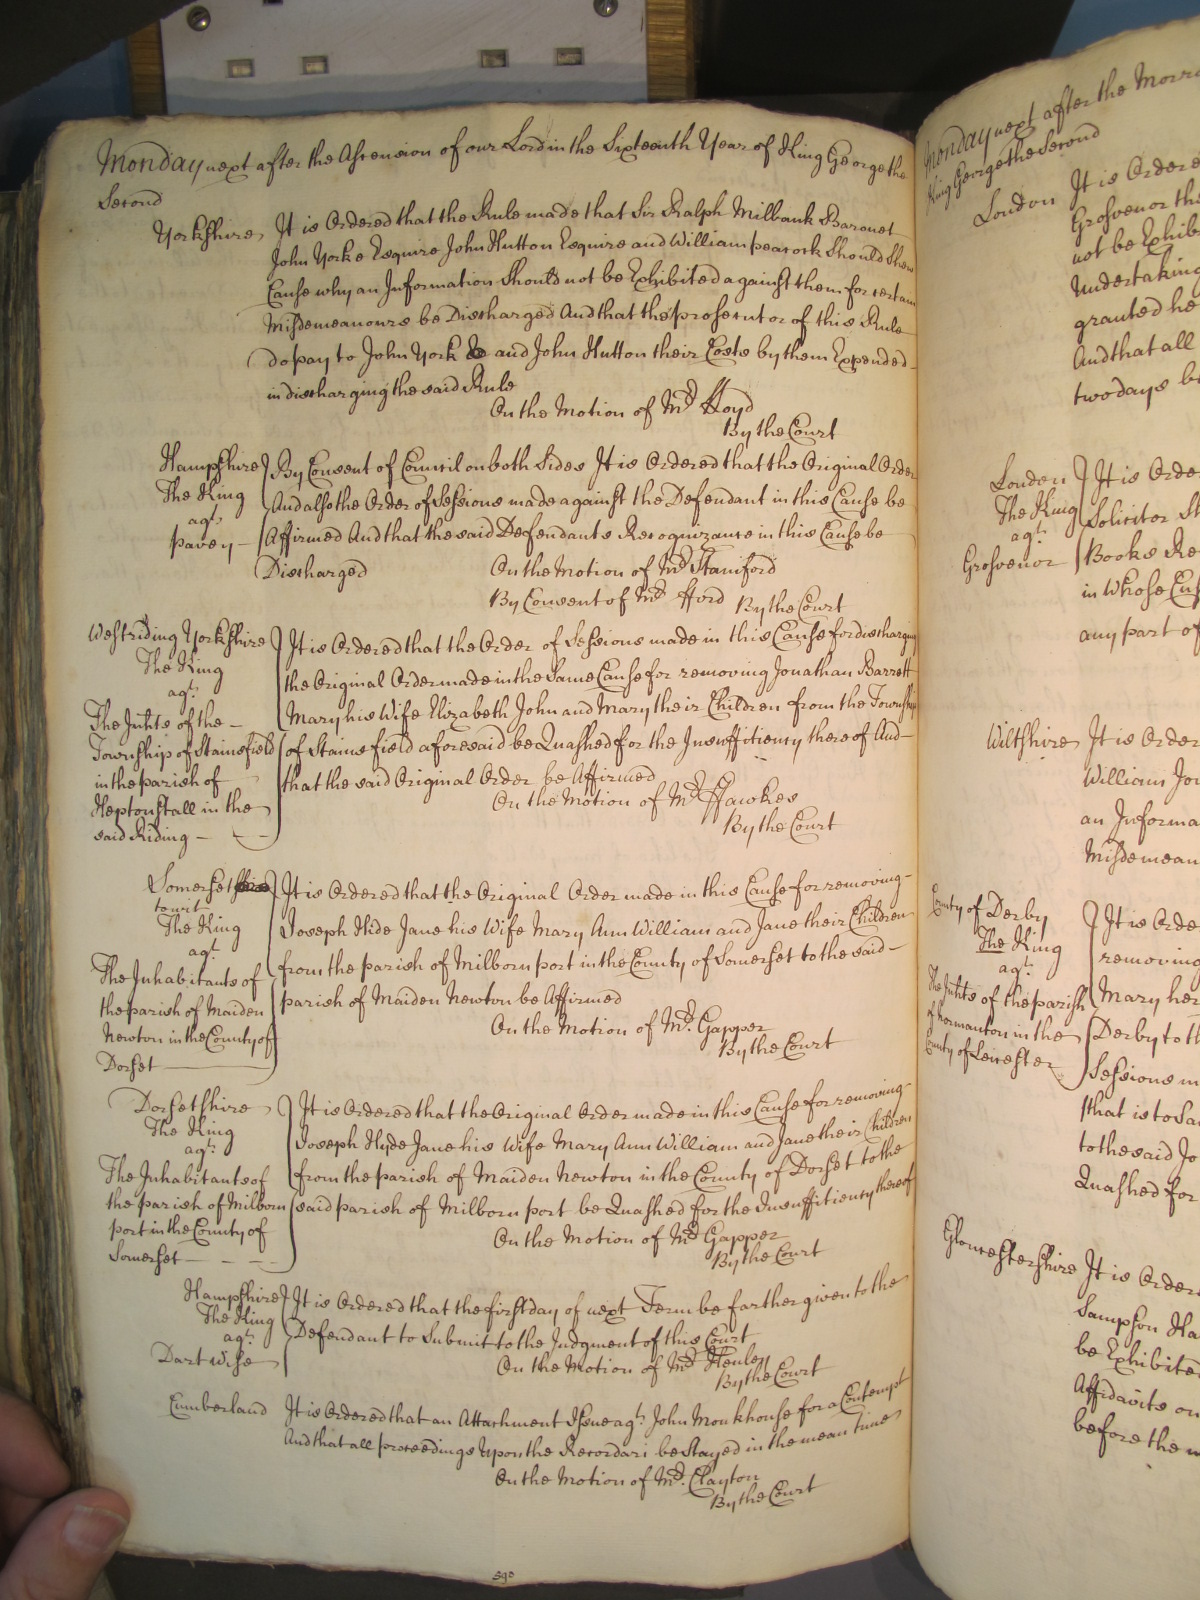 Monday next after the Ascension of our Lord in the Sixteenth Year of King George the
Second
Yorkshire It is Ordered that the Rule made that Sir Ralph Milbank Baronet
John Yorke Esquire John Hutton Esquire and William peacock Should Shew
Cause why an Information Should not be Exhibited against them for certain
Misdemeanours be Discharged And that the prosecutor of this Rule
do pay to John York and John Hutton their Costs by them Expended
in discharging the said Rule
On the Motion of Mr. Lloyd
By the Court
Hampshire
The King
agt.
pavey
By Consent of Council on both Sides It is Ordered that the Original Order
And also the Order of Sessions made against the Defendant in this Cause be
Affirmed And that the said Defendants Recognizance in this Cause be
Discharged On the Motion of Mr. Staniford
By Consent of Mr. fford By the Court
Westriding Yorkshire
The King
agt.
The Inhts. of the
Township of Stainsfield
in the parish of
Heptonstall in the
said Riding
It is Ordered that the Order of Sessions made in this Cause for discharging
the Original Order made in the Same Cause for removing Jonathan Barrett
Mary his Wife Elizabeth John and Mary their Children from the Township
of Stainsfield aforesaid be Quashed for the Insufficiency there of And
that the said Original Order be Affirmed
On the Motion of Mr. ffawkes
By the Court
Somerset
to wit
The King
agt.
The Inhabitants of
the parish of Maiden
Newton in the County of
Dorset
It is Ordered that the Original Order made in this Cause for removing
Joseph Hide Jane his Wife Mary Ann William and Jane their Children
from the parish of Milborn port in the County of Somerset to the said
parish of Maiden Newton be Affirmed
On the Motion of Mr. Gapper
By the Court
Dorsetshire
The King
agt.
The Inhabitants of
the parish of Milborn
port in the County of
Somerset
It is Ordered that the Original Order made in this Cause for removing
Joseph Hyde Jane his Wife Mary Ann William and Jane their Children
from the parish of Maiden Newton in the County of Dorset to the
said parish of Milborn port be Quashed for the Insufficiency thereof
On the Motion of Mr. Gapper
By the Court
Hampshire
The King
agt.
Dart Wise
It is Ordered that the first day of next Term be farther given to the
Defendant to Submit to the Judgment of this Court
On the Motion of Mr. Henley
By the Court
Cumberland It is Ordered that an Attachment Issue agt. John Monkhouse for a Contempt
And that all proceedings Upon the Recordari be Stayed in the mean time
On the Motion of Mr. Clayton
By the Court
Monday next after the Morro
King George the Second
London It is Ordere
Grosvenor th
not be Exhib
Undertaking
granted he
And that all
two days b
London
The King
agt.
Grosvenor
It is Orde
Solicitor Sh
Books Re
in Whose Cus
any part of
Wiltshire It is Order
William Jo
an Informa
Misdemean
County of Derby
The King
agt.
The Inhts. of the parish
of Normanton in the
County of Leicester
It is Orde
removing
Mary her
Derby to th
Sessions m
that is to Sa
to the said Jo
Quashed for
Gloucestershire It is Ordere
Sampson Ha
be Exhibite
Affidavits on
before the